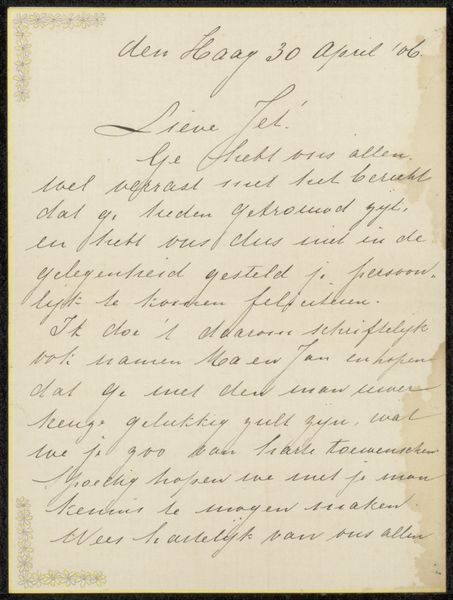 den Haag 30 April '06.
Lieve Jet!
Ge hebt ons allen
wel verrast met het bericht
dat ge heden getrouwd zijt,
en hebt ons dus niet in de
gelegenheid gesteld je persoon-
lijk te komen feliciteren.
Ik doe 't daarom schriftelijk
ook namens Ma en Jan en hopen
dat ge met den man uwer
keuze gelukkig zult zijn, wat
we je zoo van harte toewenschen
Spoedig hopen we met je man
kennis te mogen maken
Wees hartelijk van ons allen